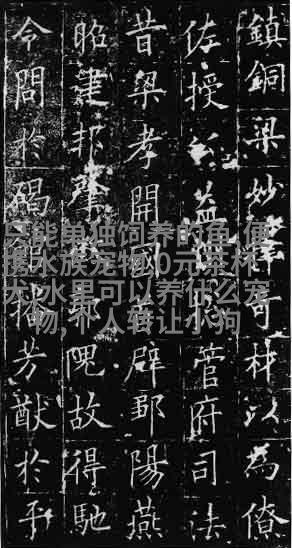 鎮銅梁妙擇奇材以為僚
佐授益管府司法
昔梁孝開國首辟鄒陽燕
昭建邦肇郭隗故得馳
令問於碣館播芳猷於平
只能单独饲养的鱼,便
携水族宠物,0元茶杯
犬,水里可以养什么宠
物,个人转让小狗